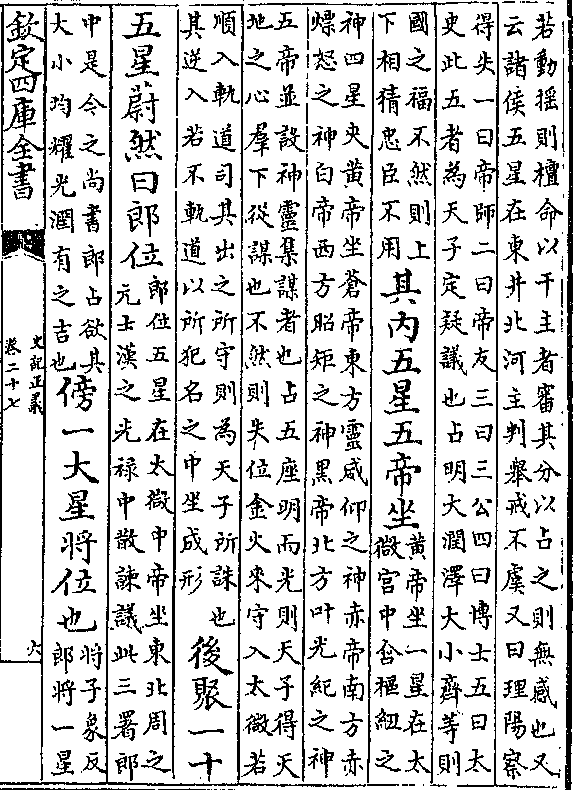 若動揺則擅命以干主者審其分以占之則無惑也又
云諸侯五星在東井北河主判舉戒不虞又曰理陽察
得失一曰帝師二曰帝友三曰三公四曰博士五曰太
史此五者為天子定疑議也占明大潤澤大小齊等則
國之福不然則上
下相猜忠臣不用
其内五星五帝坐
黃帝坐一星在太
微宫中含樞紐之
神四星夾黃帝坐蒼帝東方靈威仰之神赤帝南方赤
熛怒之神白帝西方昭矩之神黑帝北方叶光紀之神
五帝並設神靈集謀者也占五座明而光則天子得天
地之心羣下從謀也不然則失位金火來守入太微若
順入軌道司其出之所守則為天子所誅也
其逆入若不軌道以所犯名之中坐成形
後聚一十
五星蔚然曰郎位
郎位五星在太微中帝坐東北周之
元士漢之光祿中散諫議此三署郎
中是今之尚書郎占欲其
大小均耀光潤有之吉也
傍一大星將位也
將子象反
郎將一星
欽定四庫全書
史記正義
卷二十七
六